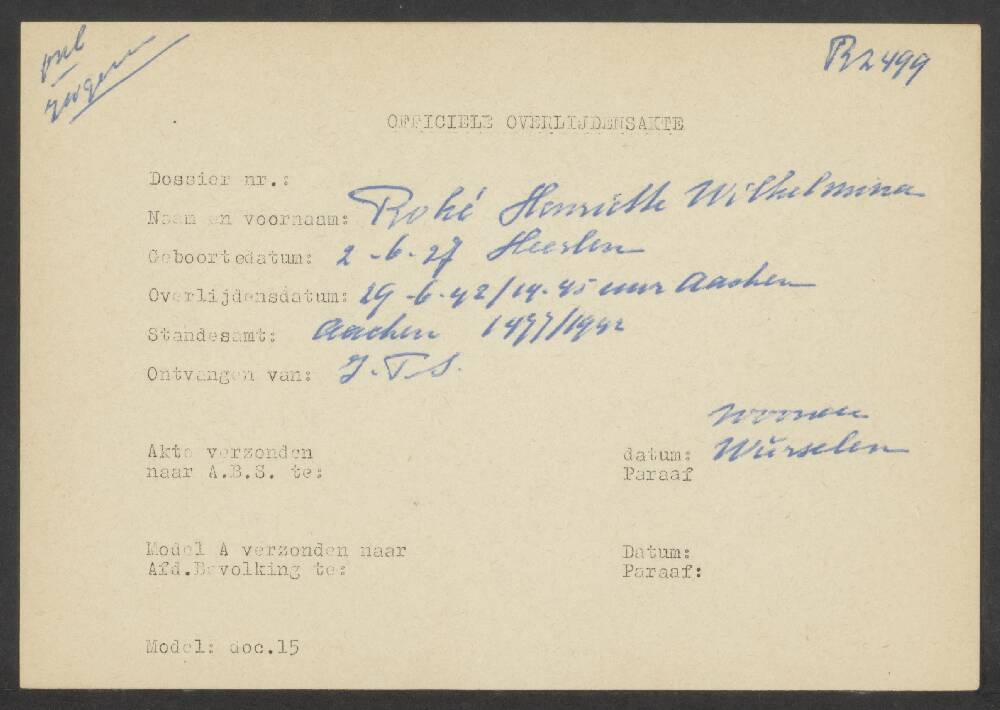 R2499
OFFICIELE OVERLIJDENSAKTE
Dossier nr.:
Naam en voornaam: Rohé Henriette Wilhelmina
Geboortedatum: 2-6-27 Heerlen
Overlijdensdatum: 29-6-42/14.45 uur Aachen
Standesamt: Aachen 1477/1942
Ontvangen van: J.T.S.
Akte verzonden
naar A.B.S. te:
datum: Würselen
Paraaf
Model A verzonden naar
Afd.Bevolking te:
Datum:
Paraaf:
Model: doc.15